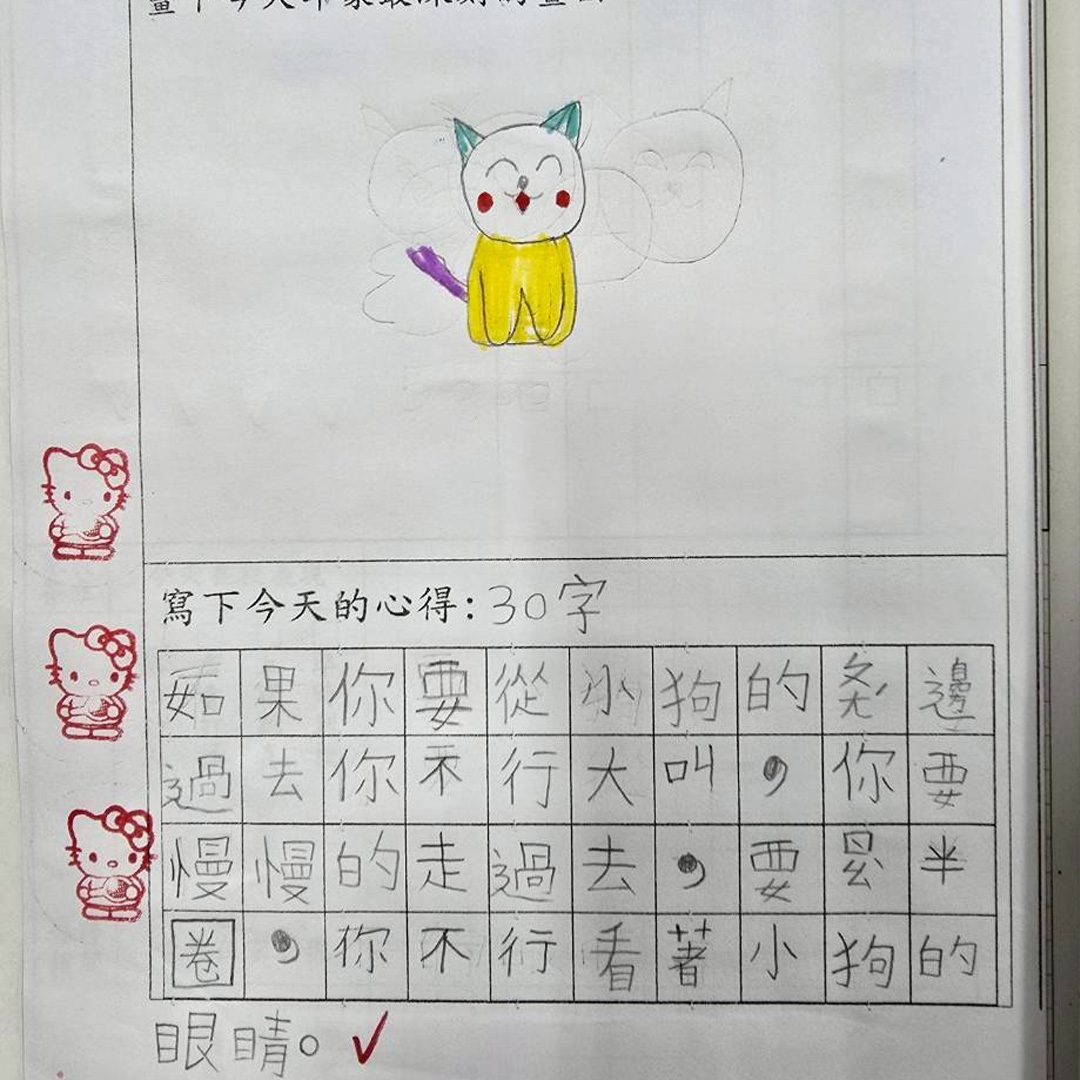 寫下今天的心得：30字
如果你要從小狗的旁邊
過去你不行大叫，你要
慢慢的走過去，要繞半
圈，你不行看著小狗的
眼睛。